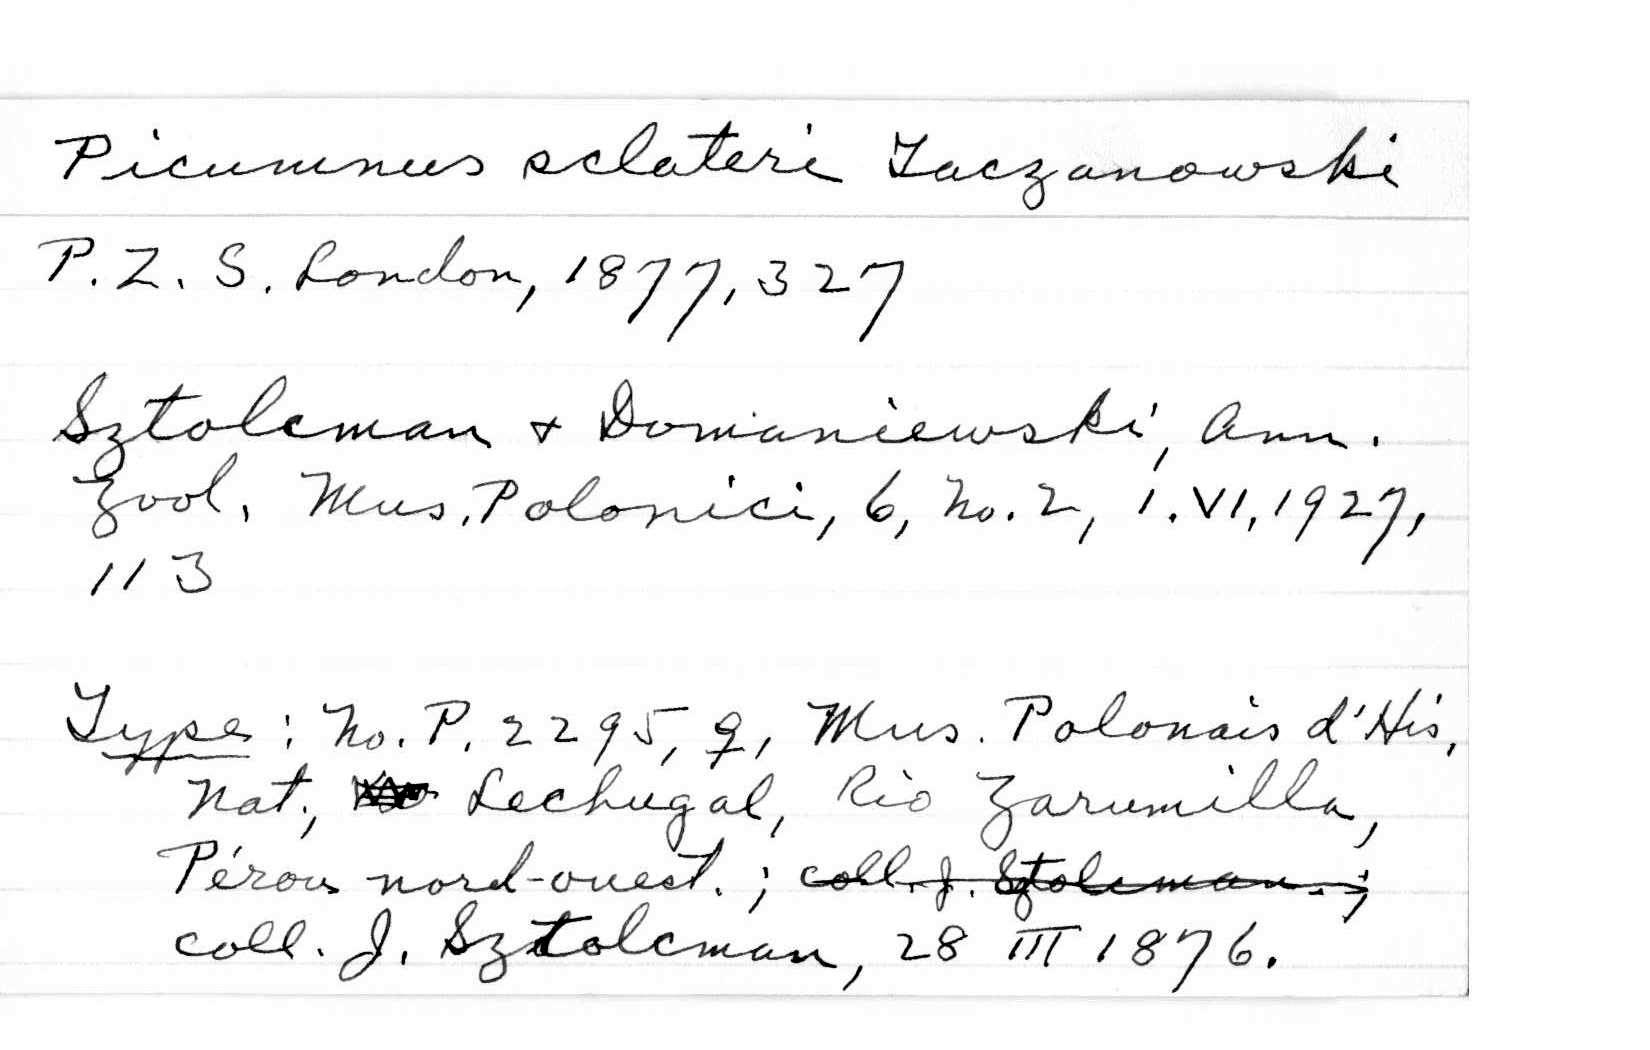 Picumnus sclateri Taczanowski
P. Z. S. London, 1877, 327
Sztolcman & Domaniewski, Ann.
Zool. Mus. Polonici, 6, No. 2, 1. VI, 1927,
113
Type: No. P. 2295, ♀, Mus. Polonais d'His.
Nat., Lechugal, Rio Zarumilla,
Pérou nord-ouest.; coll. J. Sztolcman.;
coll. J. Sztolcman, 28 III 1876.